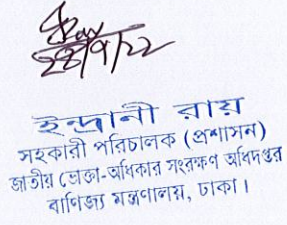 ২৪/৭/২২
ইন্দ্রানী রায়
সহকারী পরিচালক (প্রশাসন)
জাতীয় ভোক্তা-অধিকার সংরক্ষণ অধিদপ্তর
বাণিজ্য মন্ত্রণালয়, ঢাকা।